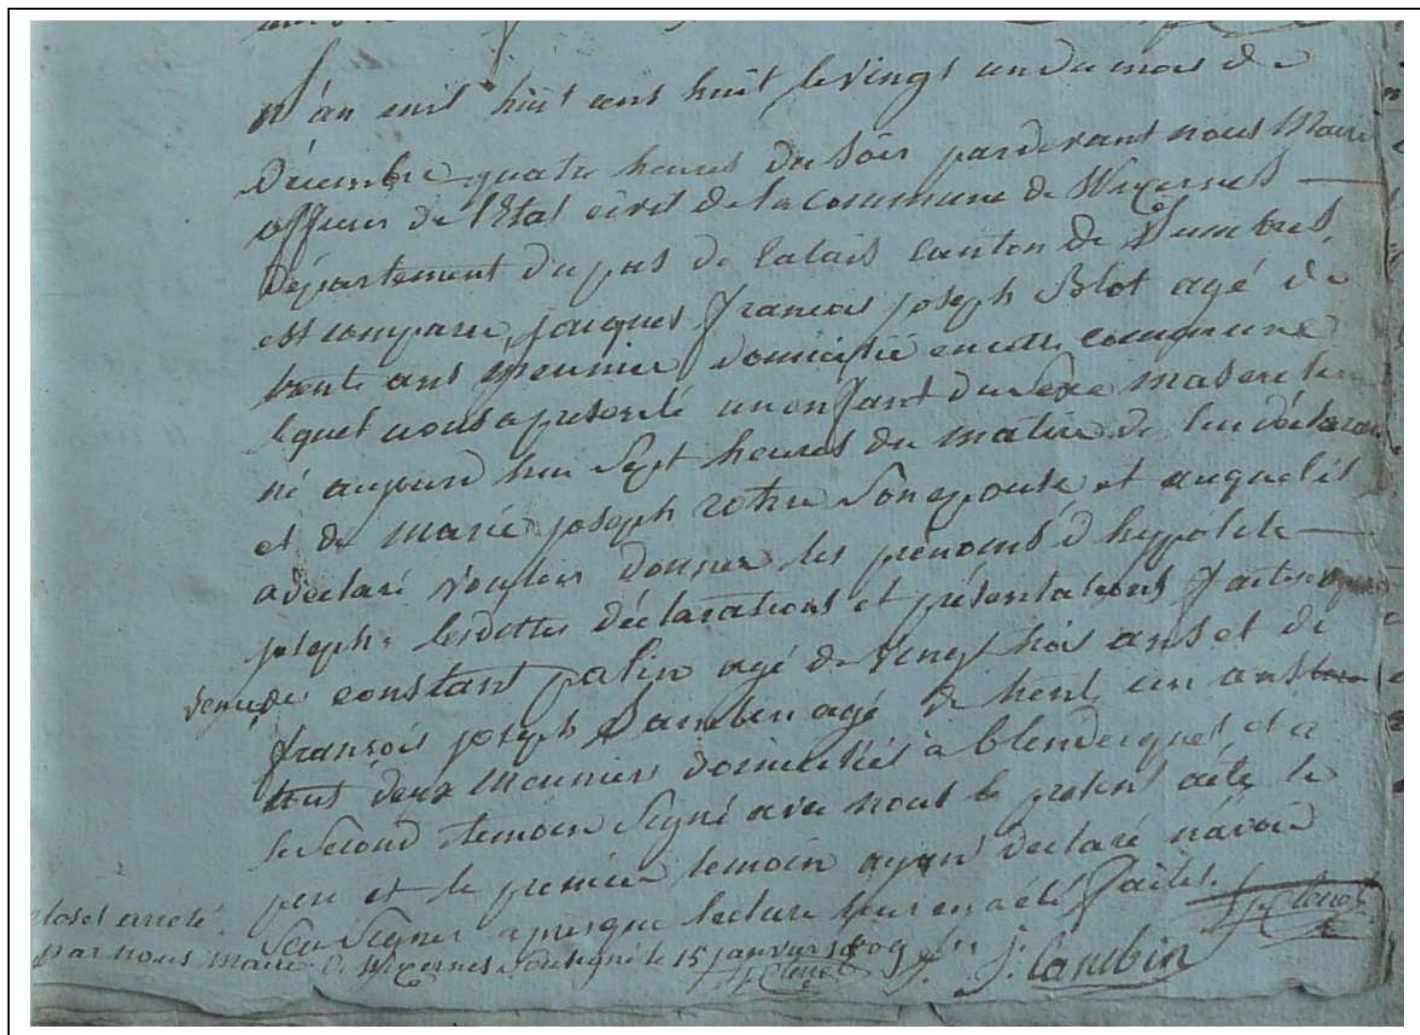 L'an mil huit cens huit le vingt un du mois de
décembre quatre heures du soir pardevant nous Maire
officier de l'Etat civil de la commune de Wizernes
département du pas de Calais canton de Lumbres,
est comparu, jacques francois joseph Blot agé de
trente ans meunier domicilié en cette commune
lequel nous a presenté un enfant du sexe masculin
né aujourd'hui sept heures du matin de lui déclarant
et de marie joseph son epouse et auquel il
a declaré vouloir donner les prénoms d'hypolite
joseph. lesdittes déclarations et présentations faites en
de constant palin agé de vingt trois ans et de
françois joseph Lambin agé de trent un ans
tous deux meuniers domiciliés à blendecques et a
le second temoin signé avec nous le présent acte le
pere et le premier temoin ayant declaré n'avoir
seu signer apresque lecture leur en a été faites.
clos et arreté
par nous maire de Wizernes soussigné le 15 janvier 1809
j. lambin